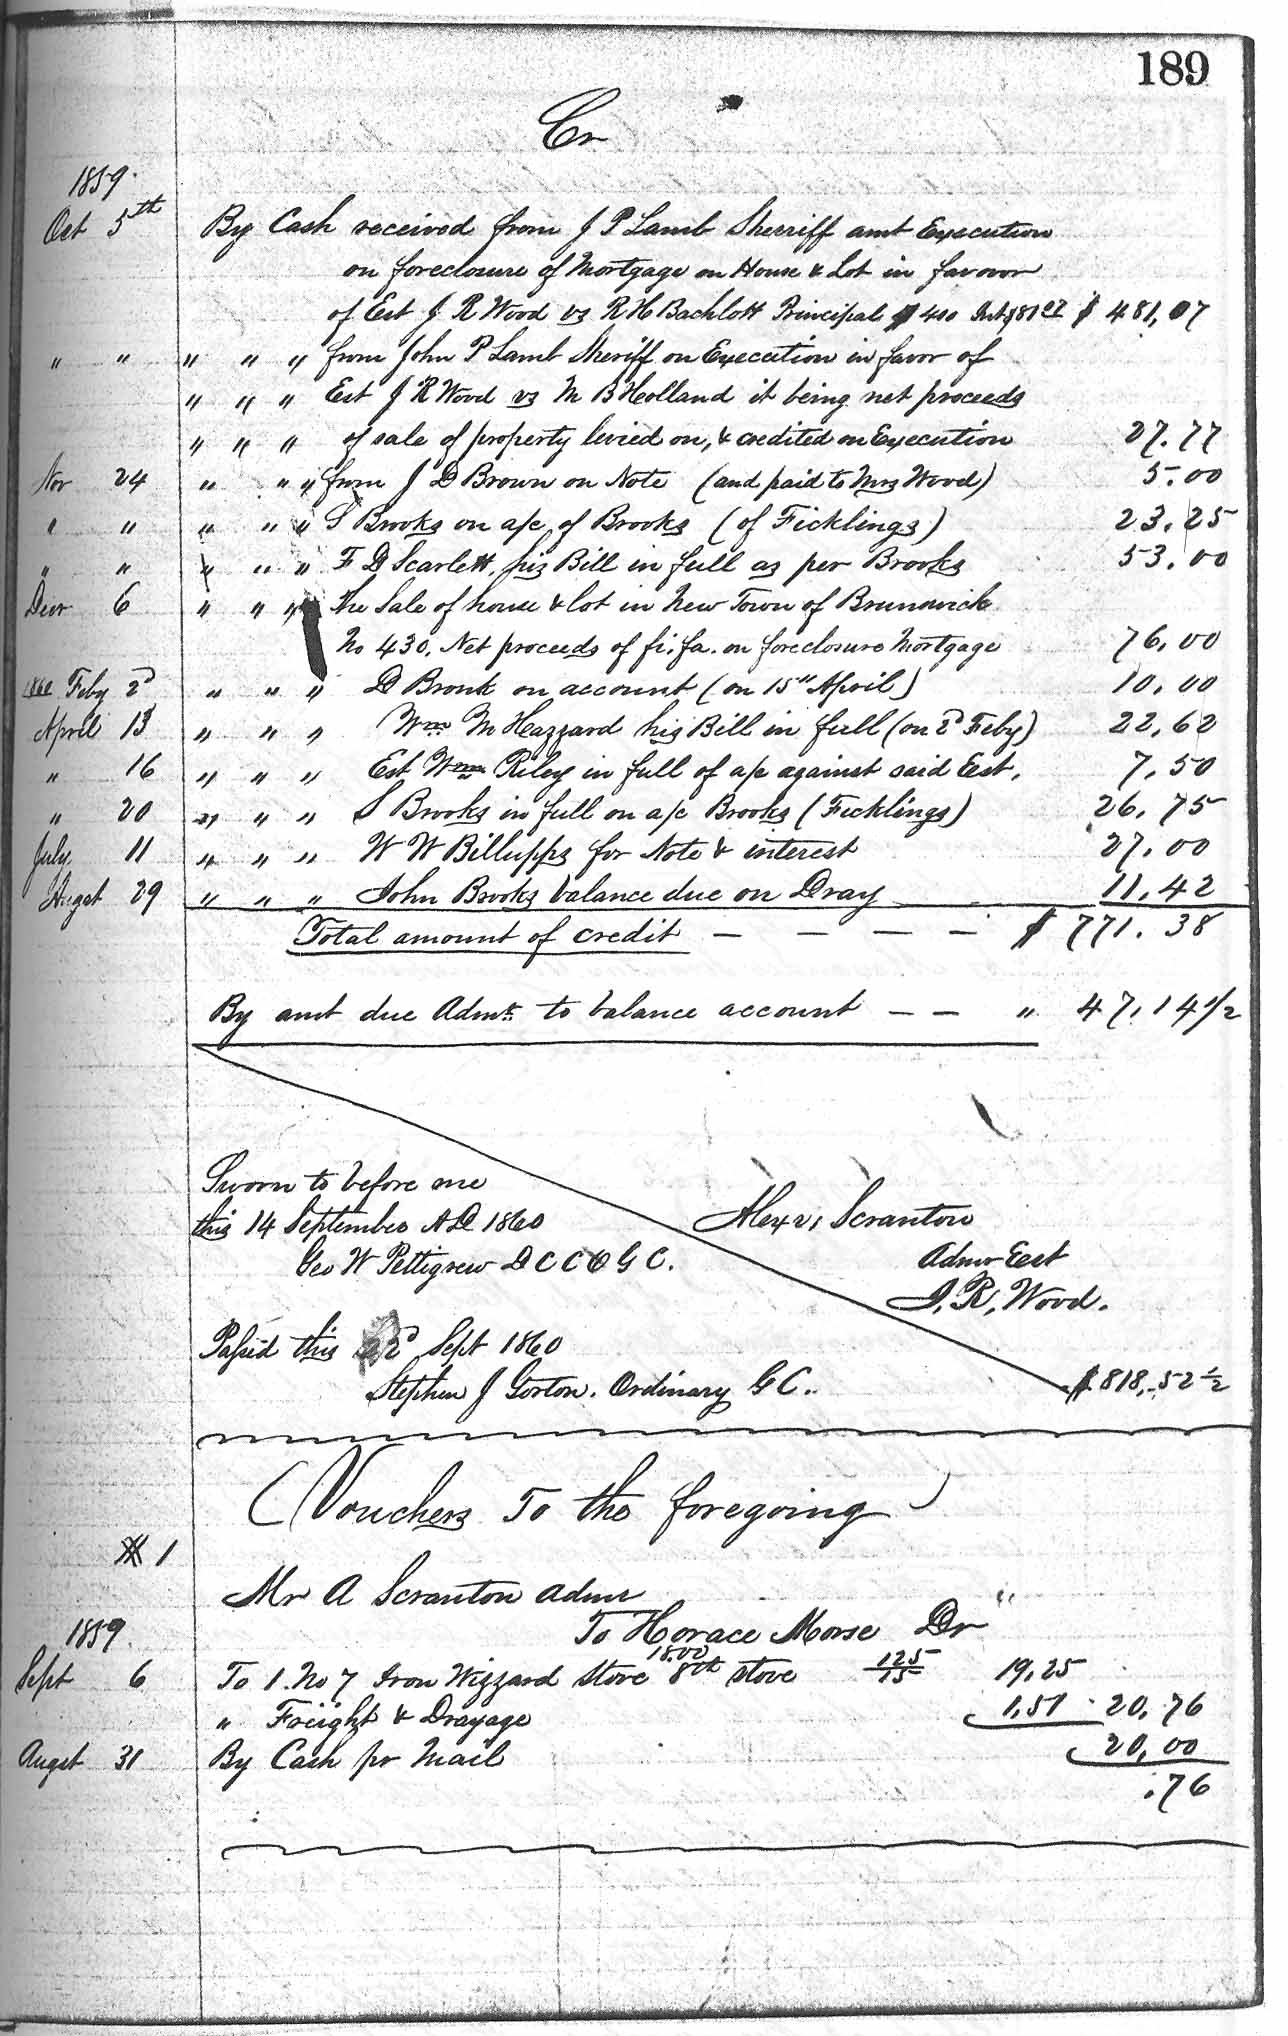 189
Cr
1859.
Oct 5th By Cash received from J P Lamb Sherriff amt Execution
on foreclosure of Mortgage on House & Lot in favour
of Est J R Wood vs R H Bachlott Principal $400 Int $81 07 $ 481,07
" " " " " from John P Lamb Sheriff on Execution in favor of
" " " Est J R Wood vs M B Holland it being net proceeds
" " " of sale of property levied on, & credited on Execution 27.77
Nov 24 " " " from J D Brown on Note (and paid to Mrs Wood) 5.00
" " " " " S Brooks on a/c of Brooks (of Ficklings) 23.25
" " " " " F D Scarlett, his Bill in full as per Brooks 53.00
Decr 6 " " " The Sale of house & lot in New Town of Brunswick
No 430. Net proceeds of fi. fa. on foreclosure Mortgage 76,00
1860 Feby 2d " " " D Bronk on account (on 15th April) 10,00
April 13 " " " Wm M Hazzard his Bill in full (on 2d Feby) 22,62
" 16 " " " Est Wm Riley in full of a/c against said Est. 7,50
" 20 " " " S Brooks in full on a/c Brooks (Ficklings) 26,75
July 11 " " " W W Billupps for Note & interest 27,00
Augst 29 " " " John Brooks balance due on Dray 11,42
Total amount of credit — — — — $ 771.38
By amt due Admr. to balance account — — " 47,14 1/2
Sworn to before me
this 14 September AD 1860 Alexr, Scranton
Geo W Pettigrew D C C O G C. Admr Est
J. R. Wood.
Passed this 22d Sept 1860
Stephen J Gorton. Ordinary G C.. $818,.52 1/2
(Vouchers To the foregoing)
# 1
Mr A Scranton admr "
1859. To Horace Morse Dr
18.00 125
Sept 6 To 1. No 7 Iron Wizzard Stove 8th stove 15 19,25
" Freight & Drayage 1,51 20,76
Augst 31 By Cash pr Mail 20,00
.76